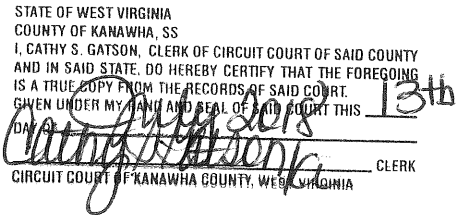 STATE OF WEST VIRGINIA
COUNTY OF KANAWHA, SS
I, CATHY S. GATSON, CLERK OF CIRCUIT COURT OF SAID COUNTY
AND IN SAID STATE, DO HEREBY CERTIFY THAT THE FOREGOING
IS A TRUE COPY FROM THE RECORDS OF SAID COURT.
GIVEN UNDER MY HAND AND SEAL OF SAID COURT THIS 13th
DAY OF July 2018
Cathy S. Gatson CLERK
CIRCUIT COURT OF KANAWHA COUNTY, WEST VIRGINIA